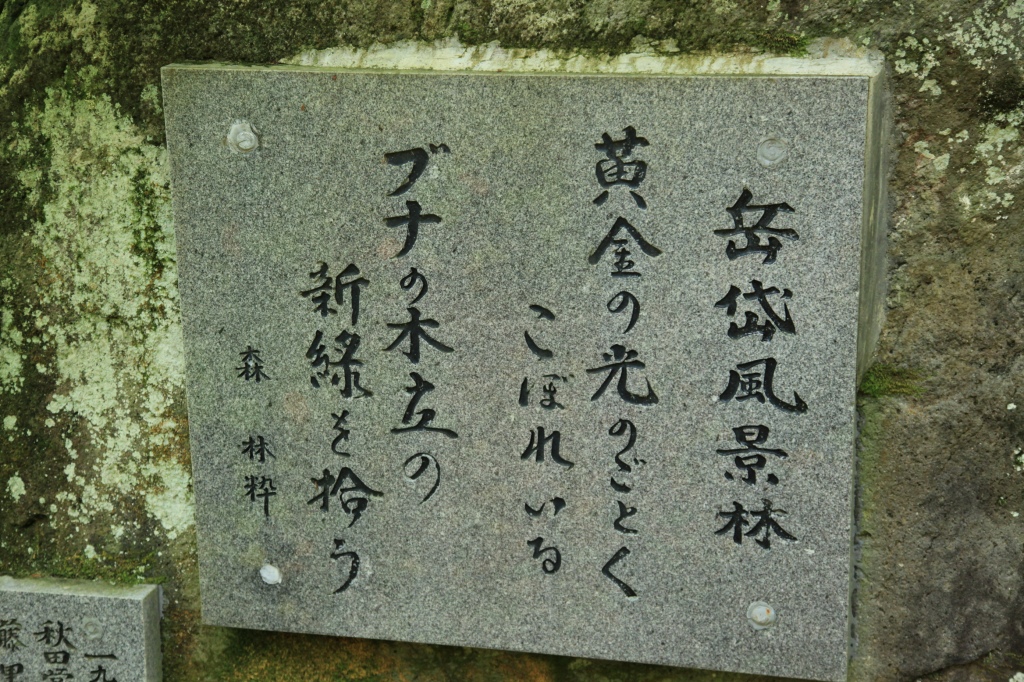 岳岱風景林
黄金の光のごとく
こぼれいる
ブナの木立の
新緑を拾う
森 林粋
一九
秋田営
藤里